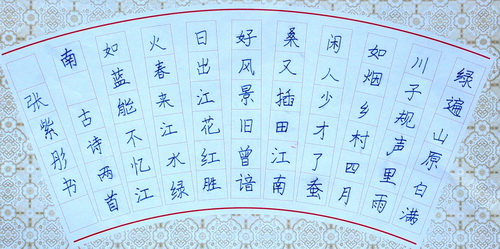 绿遍山原白满
川子规声里雨
如烟乡村四月
闲人少才了蚕
桑又插田江南
好风景旧曾谙
日出江花红胜
火春来江水绿
如蓝能不忆江
南 古诗两首
张紫彤书